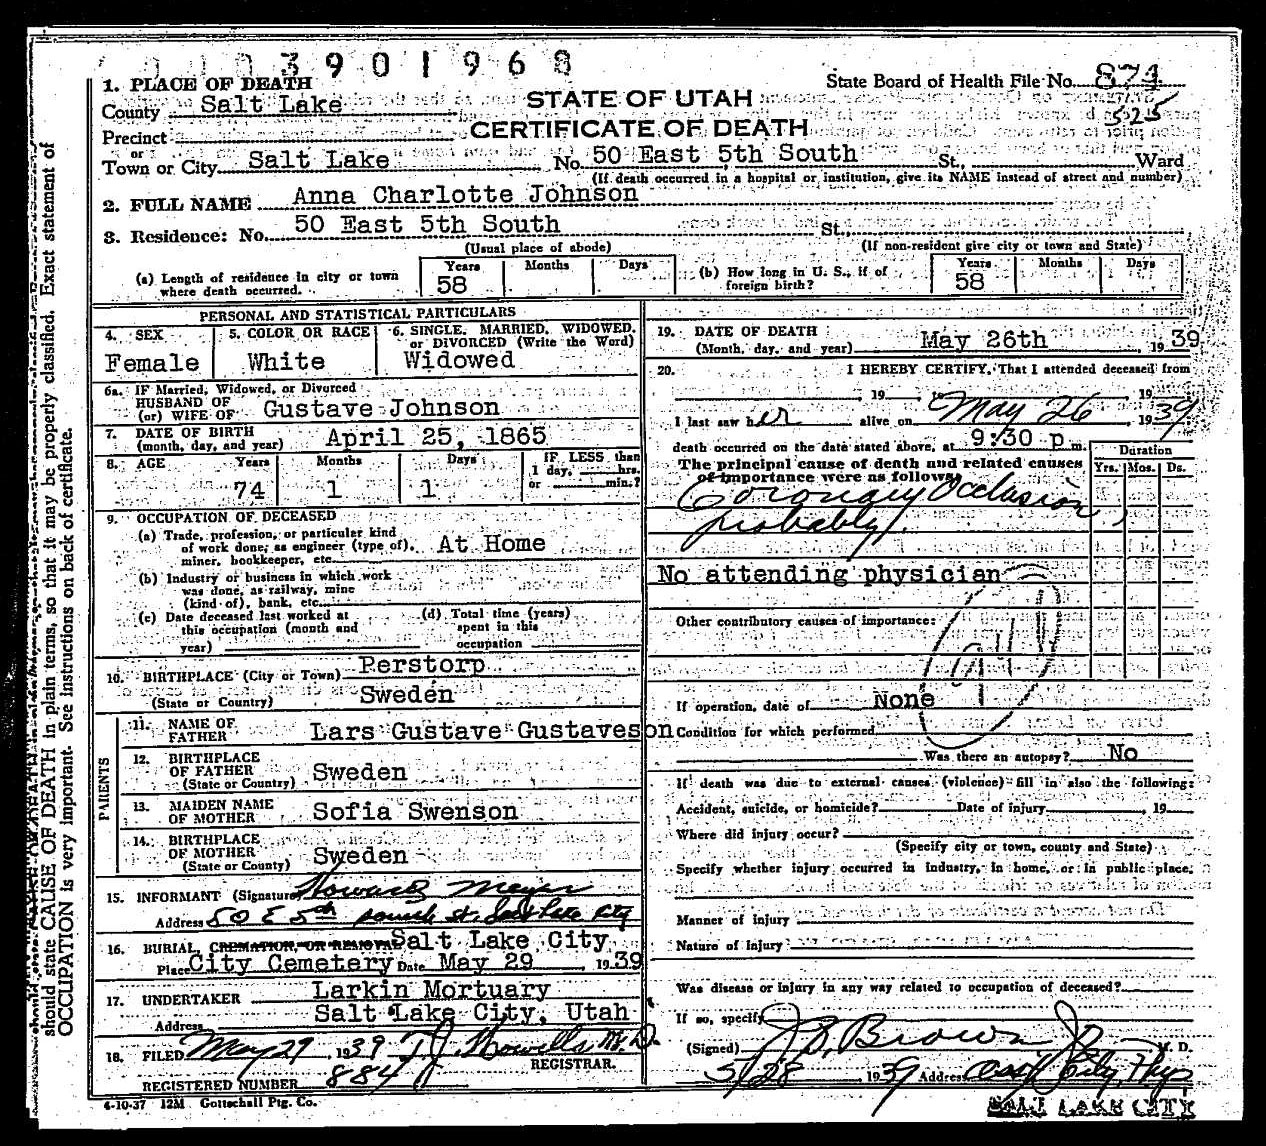 3901968
State Board of Health File No. 874
525
STATE OF UTAH
CERTIFICATE OF DEATH
1. PLACE OF DEATH
County Salt Lake
Precinct
or
Town or City Salt Lake No. 50 East 5th South St., Ward
(If death occurred in a hospital or institution, give its NAME instead of street and number)
2. FULL NAME Anna Charlotte Johnson
3. Residence: No. 50 East 5th South St.
(Usual place of abode) (If non-resident give city or town and State)
(a) Length of residence in city or town where death occurred. Years 58 Months Days
(b) How long in U. S., if of foreign birth? Years 58 Months Days
PERSONAL AND STATISTICAL PARTICULARS
4. SEX Female
5. COLOR OR RACE White
6. SINGLE, MARRIED, WIDOWED, or DIVORCED (Write the Word) Widowed
6a. IF Married, Widowed, or Divorced
HUSBAND OF
(or) WIFE OF Gustave Johnson
7. DATE OF BIRTH
(month, day, and year) April 25, 1865
8. AGE Years 74 Months 1 Days 1 IF LESS than 1 day, hrs. or min.?
9. OCCUPATION OF DECEASED
(a) Trade, profession, or particular kind
of work done; as engineer (type of), At Home
miner, bookkeeper, etc.
(b) Industry or business in which work
was done, as railway, mine
(kind of), bank, etc.
(c) Date deceased last worked at this occupation (month and year)
(d) Total time (years) spent in this occupation
10. BIRTHPLACE (City or Town) Perstorp
(State or Country) Sweden
PARENTS
11. NAME OF FATHER Lars Gustave Gustaveson
12. BIRTHPLACE OF FATHER (State or Country) Sweden
13. MAIDEN NAME OF MOTHER Sofia Swenson
14. BIRTHPLACE OF MOTHER (State or County) Sweden
15. INFORMANT (Signature) Howard Meyer
Address 50 E 5th South St. Salt Lake City
16. BURIAL, CREMATION, OR REMOVAL Salt Lake City
Place City Cemetery Date May 29, 1939
17. UNDERTAKER Larkin Mortuary
Address Salt Lake City, Utah
18. FILED May 29, 1939 T.J. Howells M.D.
REGISTRAR.
REGISTERED NUMBER 884
4-10-37 12M Gottschall Ptg. Co.
19. DATE OF DEATH
(Month, day, and year) May 26th, 1939
20. I HEREBY CERTIFY, That I attended deceased from
, 19 , to , 19
I last saw her alive on May 26 1939
death occurred on the date stated above, at 9:30 p m.
The principal cause of death and related causes
of importance were as follows:
Duration
Yrs. Mos. Ds.
Coronary Occlusion,
probably.
No attending physician
Other contributory causes of importance:
94
If operation, date of None
Condition for which performed
Was there an autopsy? No
If death was due to external causes (violence) fill in also the following:
Accident, suicide, or homicide? Date of injury , 19
Where did injury occur?
(Specify city or town, county and State)
Specify whether injury occurred in industry, in home, or in public place.
Manner of injury
Nature of injury
Was disease or injury in any way related to occupation of deceased?
If so, specify
(Signed) J. S. Brown Jr M. D.
5/28, 1939 Address Asst City Phys
SALT LAKE CITY
should state CAUSE OF DEATH in plain terms, so that it may be properly classified. Exact statement of
OCCUPATION is very important. See instructions on back of certificate.